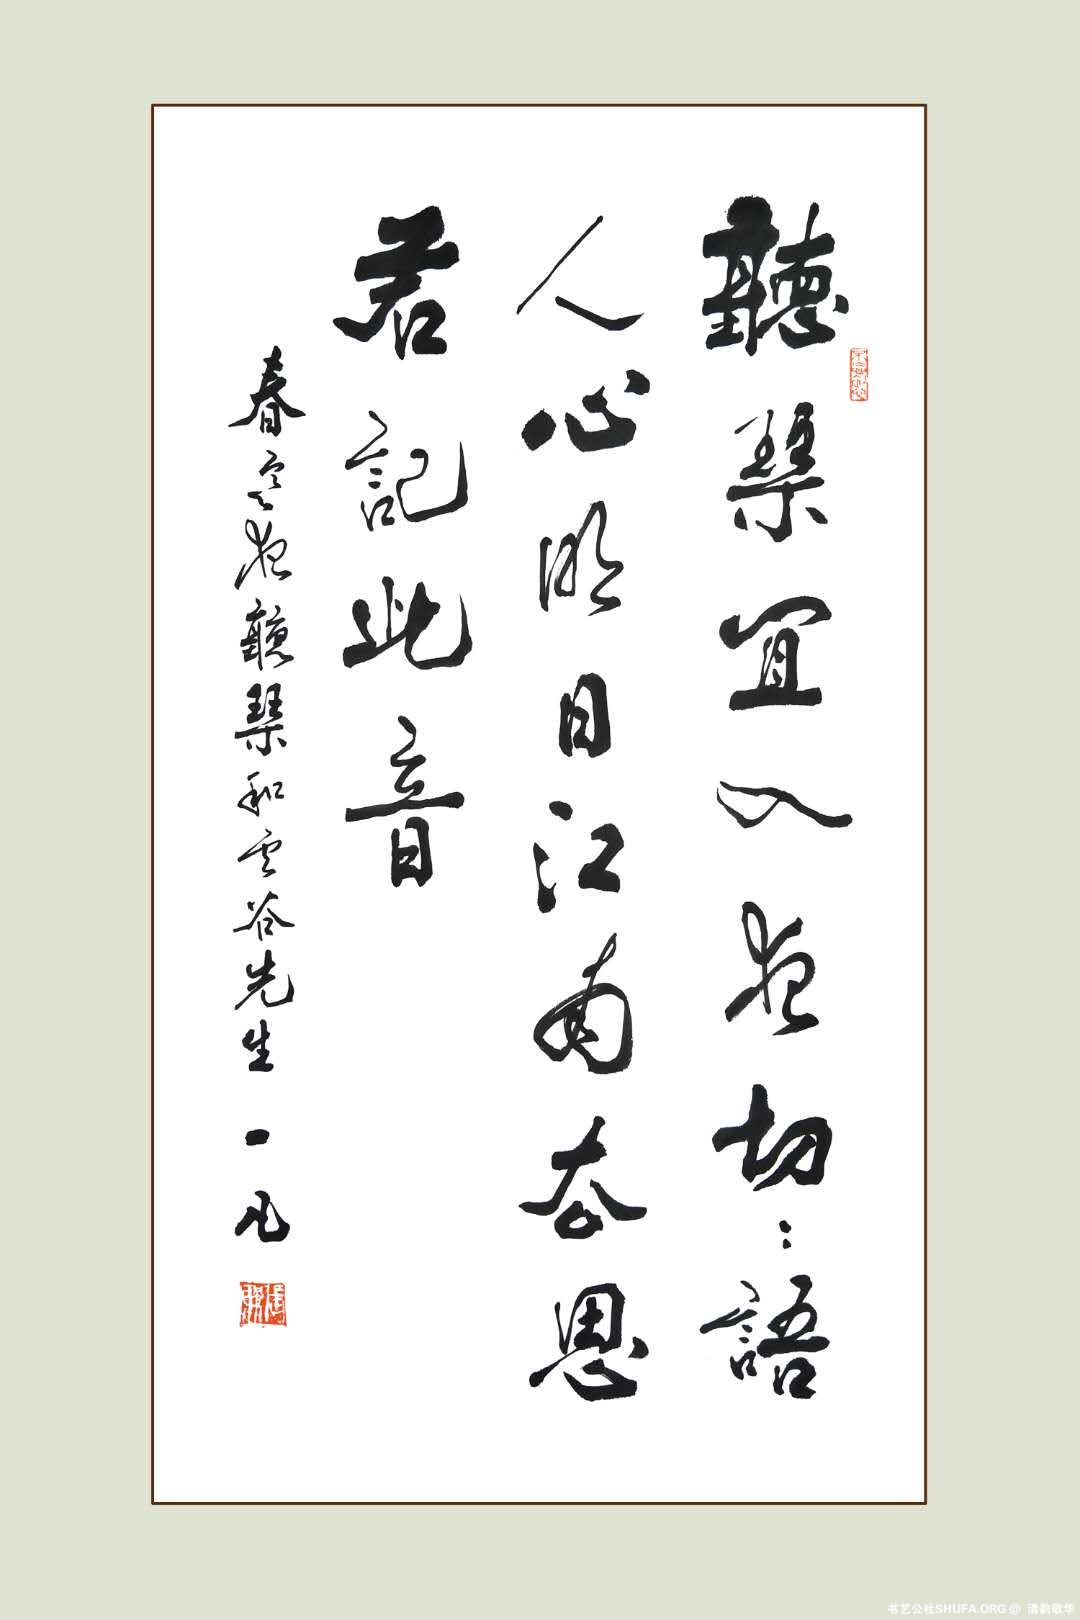 聽琴宜入夜切〻語
人心明日江南去思
君記此音
春寒夜聽琴和雲谷先生 一凡
书艺公社SHUFA.ORG @ 清韵歌华